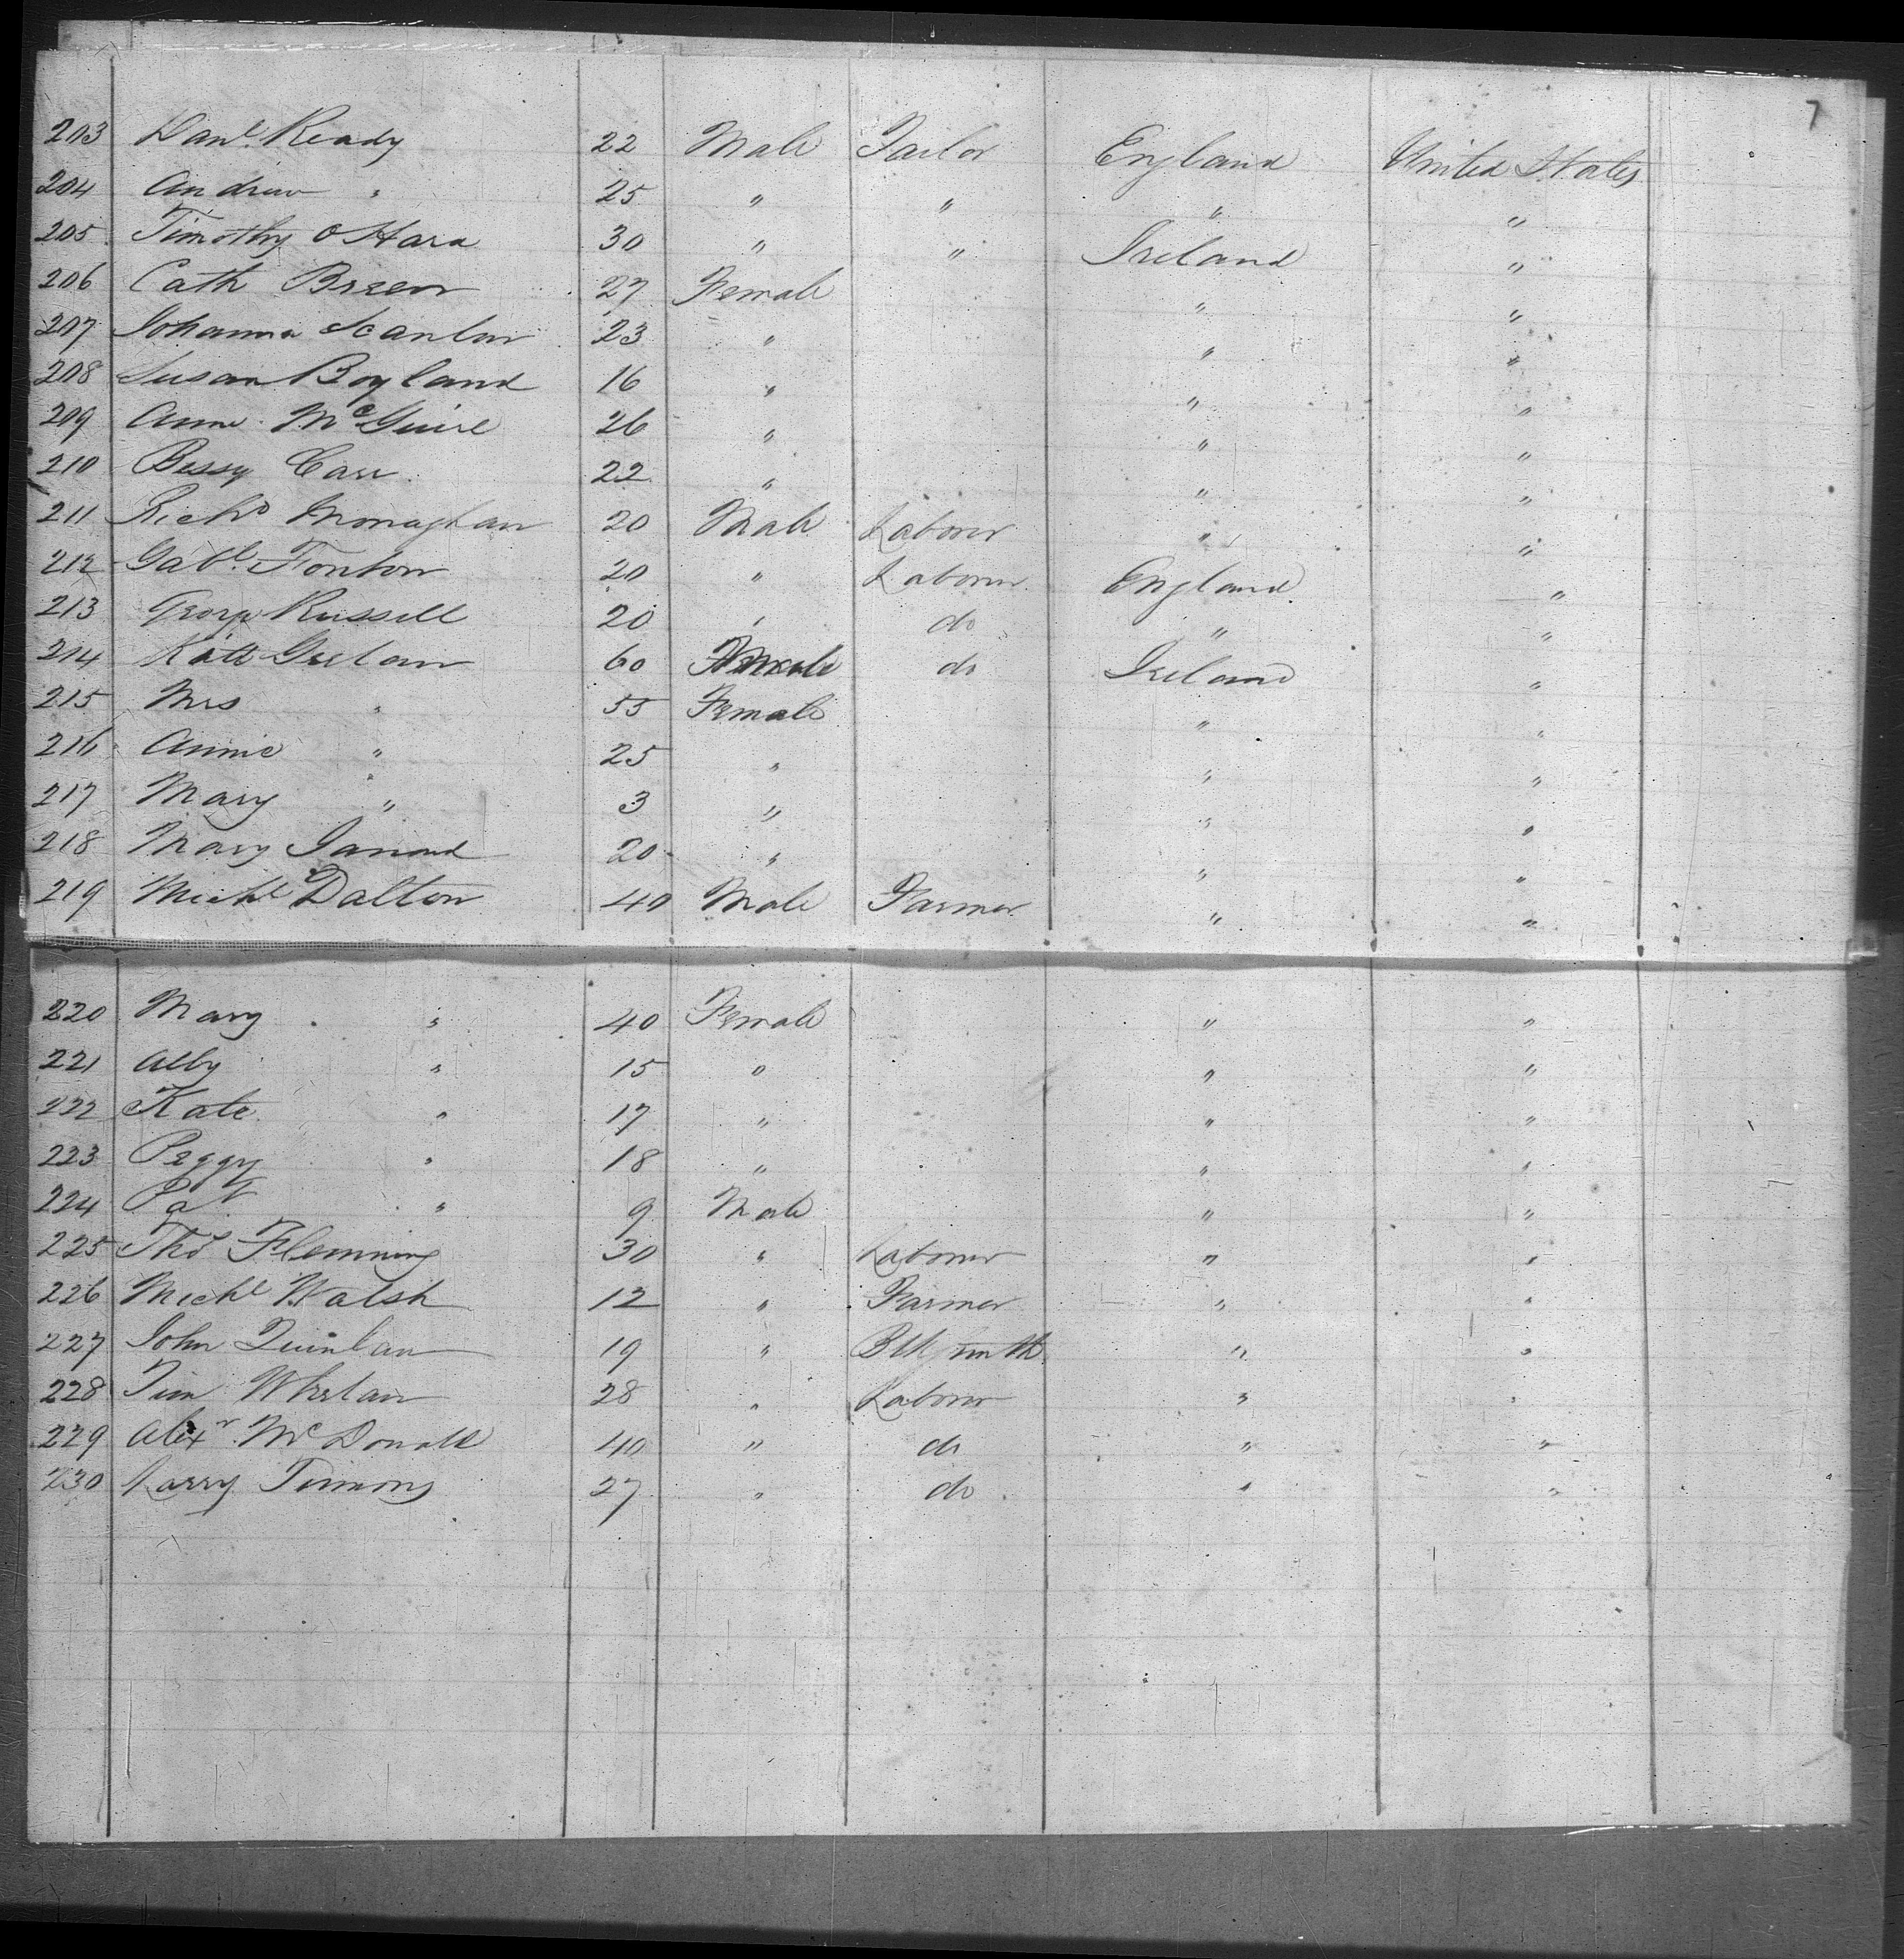 7
203 Danl. Ready 22 Male Tailor England United States
204 Andrew " 25 " " " "
205 Timothy O Hara 30 " " Ireland "
206 Cath Breen 27 Female " "
207 Johanna Scanlon 23 " " "
208 Susan Boyland 16 " " "
209 Anne McGuire 26 " " "
210 Bessy Carr 22 " " "
211 Richd Monaghan 20 Male Laborer " "
212 Gabl. Fonton 20 " Laborer England "
213 George Russell 20 " do " "
214 60 do Ireland "
215 Mrs " 55 Female " "
216 Annie " 25 " " "
217 Mary " 3 " " "
218 Mary 20 " " "
219 Michl Dalton 40 Male Farmer " "
220 Mary " 40 Female " "
221 Alby " 15 " " "
222 Kate " 17 " " "
223 Peggy " 18 " " "
224 Pat " 9 Male " "
225 Thos Flemming 30 " Laborer " "
226 Michl Walsh 12 " Farmer " "
227 John Quinlan 19 " Blksmith " "
228 Tim Whelan 28 " Laborer " "
229 Alexr McDonald 40 " do " "
230 Larry Timmons 27 " do " "